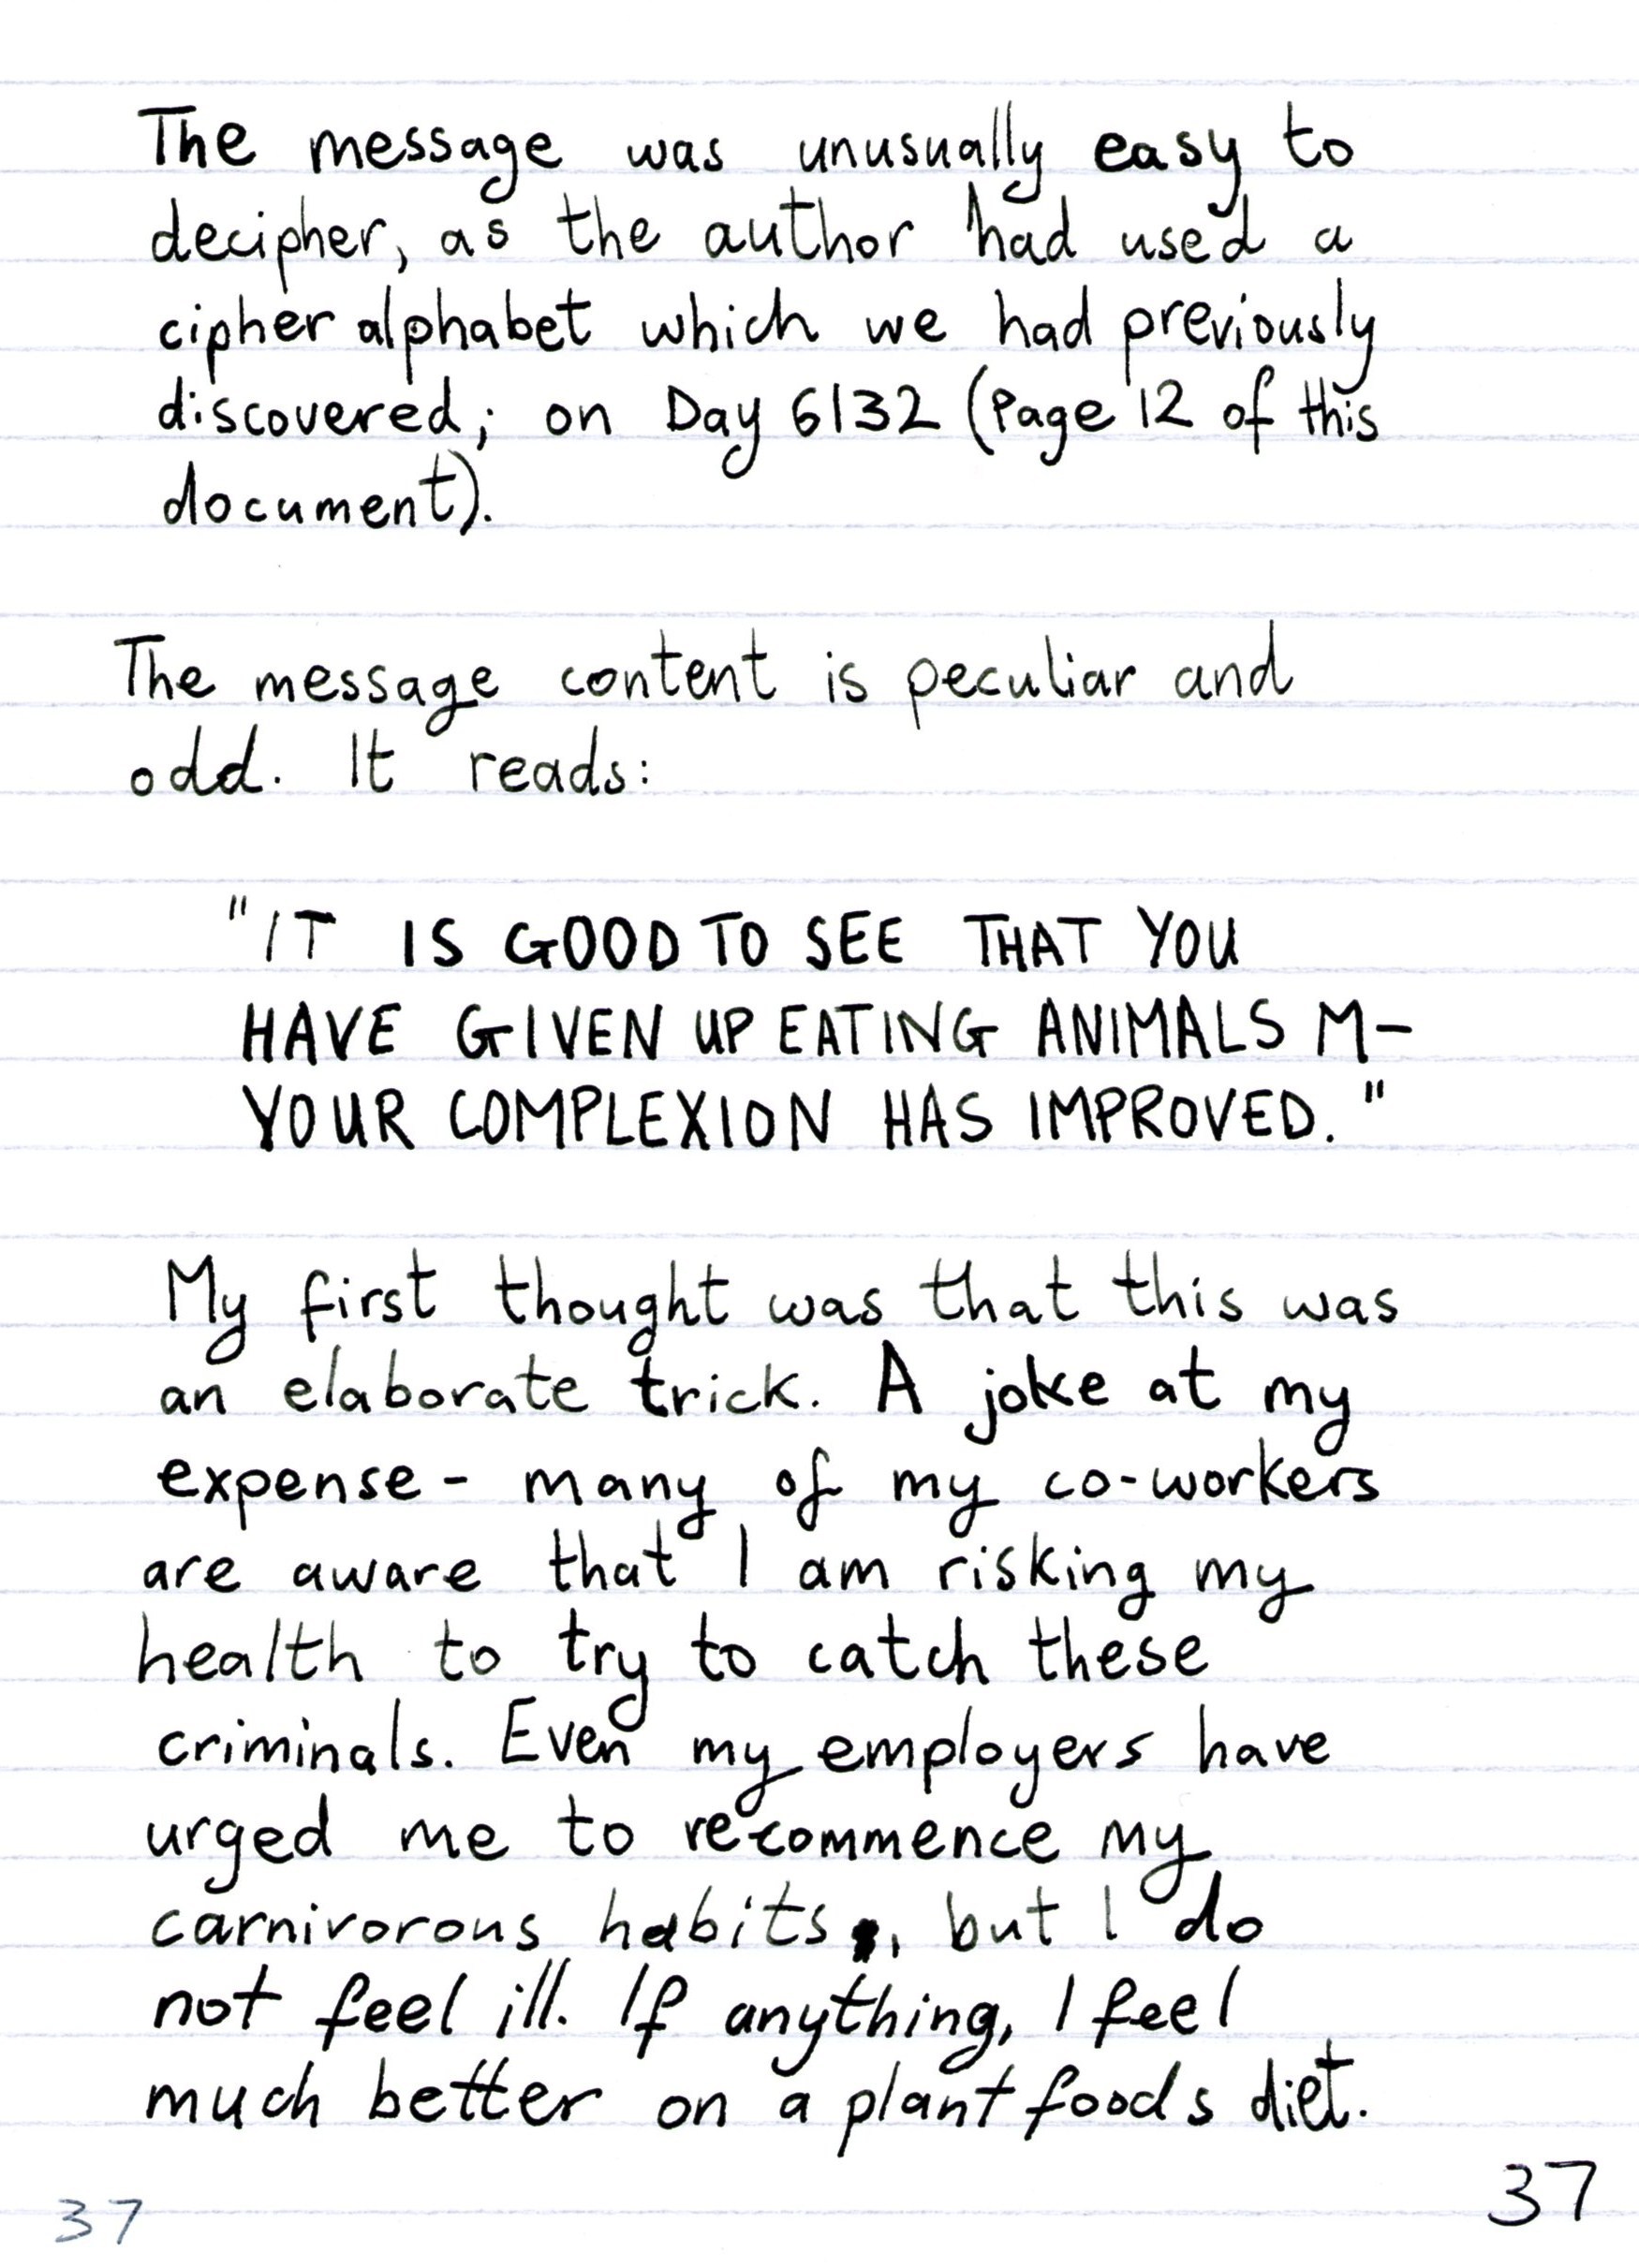 The message was unusually easy to
decipher, as the author had used a
cipher alphabet which we had previously
discovered; on Day 6132 (Page 12 of this
document).
The message content is peculiar and
odd. It reads:
"IT IS GOOD TO SEE THAT YOU
HAVE GIVEN UP EATING ANIMALS M–
YOUR COMPLEXION HAS IMPROVED."
My first thought was that this was
an elaborate trick. A joke at my
expense - many of my co-workers
are aware that I am risking my
health to try to catch these
criminals. Even my employers have
urged me to recommence my
carnivorous habits, but I do
not feel ill. If anything, I feel
much better on a plant foods diet.
37
37